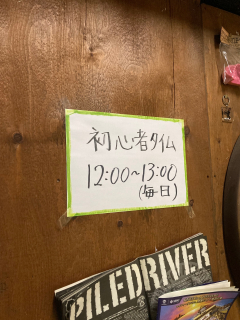 初心者タイム
12:00~13:00
(毎日)
PILEDRIVER